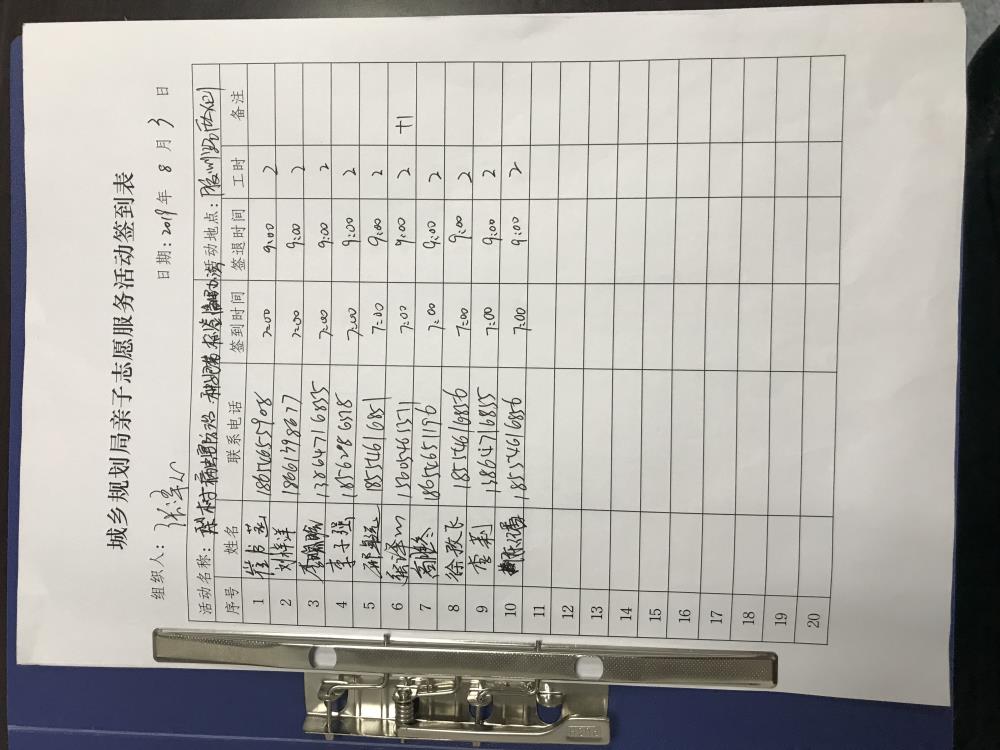 城乡规划局亲子志愿服务活动签到表
组织人： 日期：2019年 8 月 3 日
活动名称： 活动地点：
序号 姓名 联系电话 签到时间 签退时间 工时 备注
1 崔书丞 18654655908 7:00 9:00 2
2 刘梓洋 18661398677 7:00 9:00 2
3 13864716835 7:00 9:00 2
4 李子强 18562986578 7:00 9:00 2
5 18554616851 7:00 9:00 2
6 15605461371 7:00 9:00 2 +1
7 18654651196 7:00 9:00 2
8 徐孜飞 18554616856 7:00 9:00 2
9 李莉 13864716835 7:00 9:00 2
10 18554616856 7:00 9:00 2
11
12
13
14
15
16
17
18
19
20